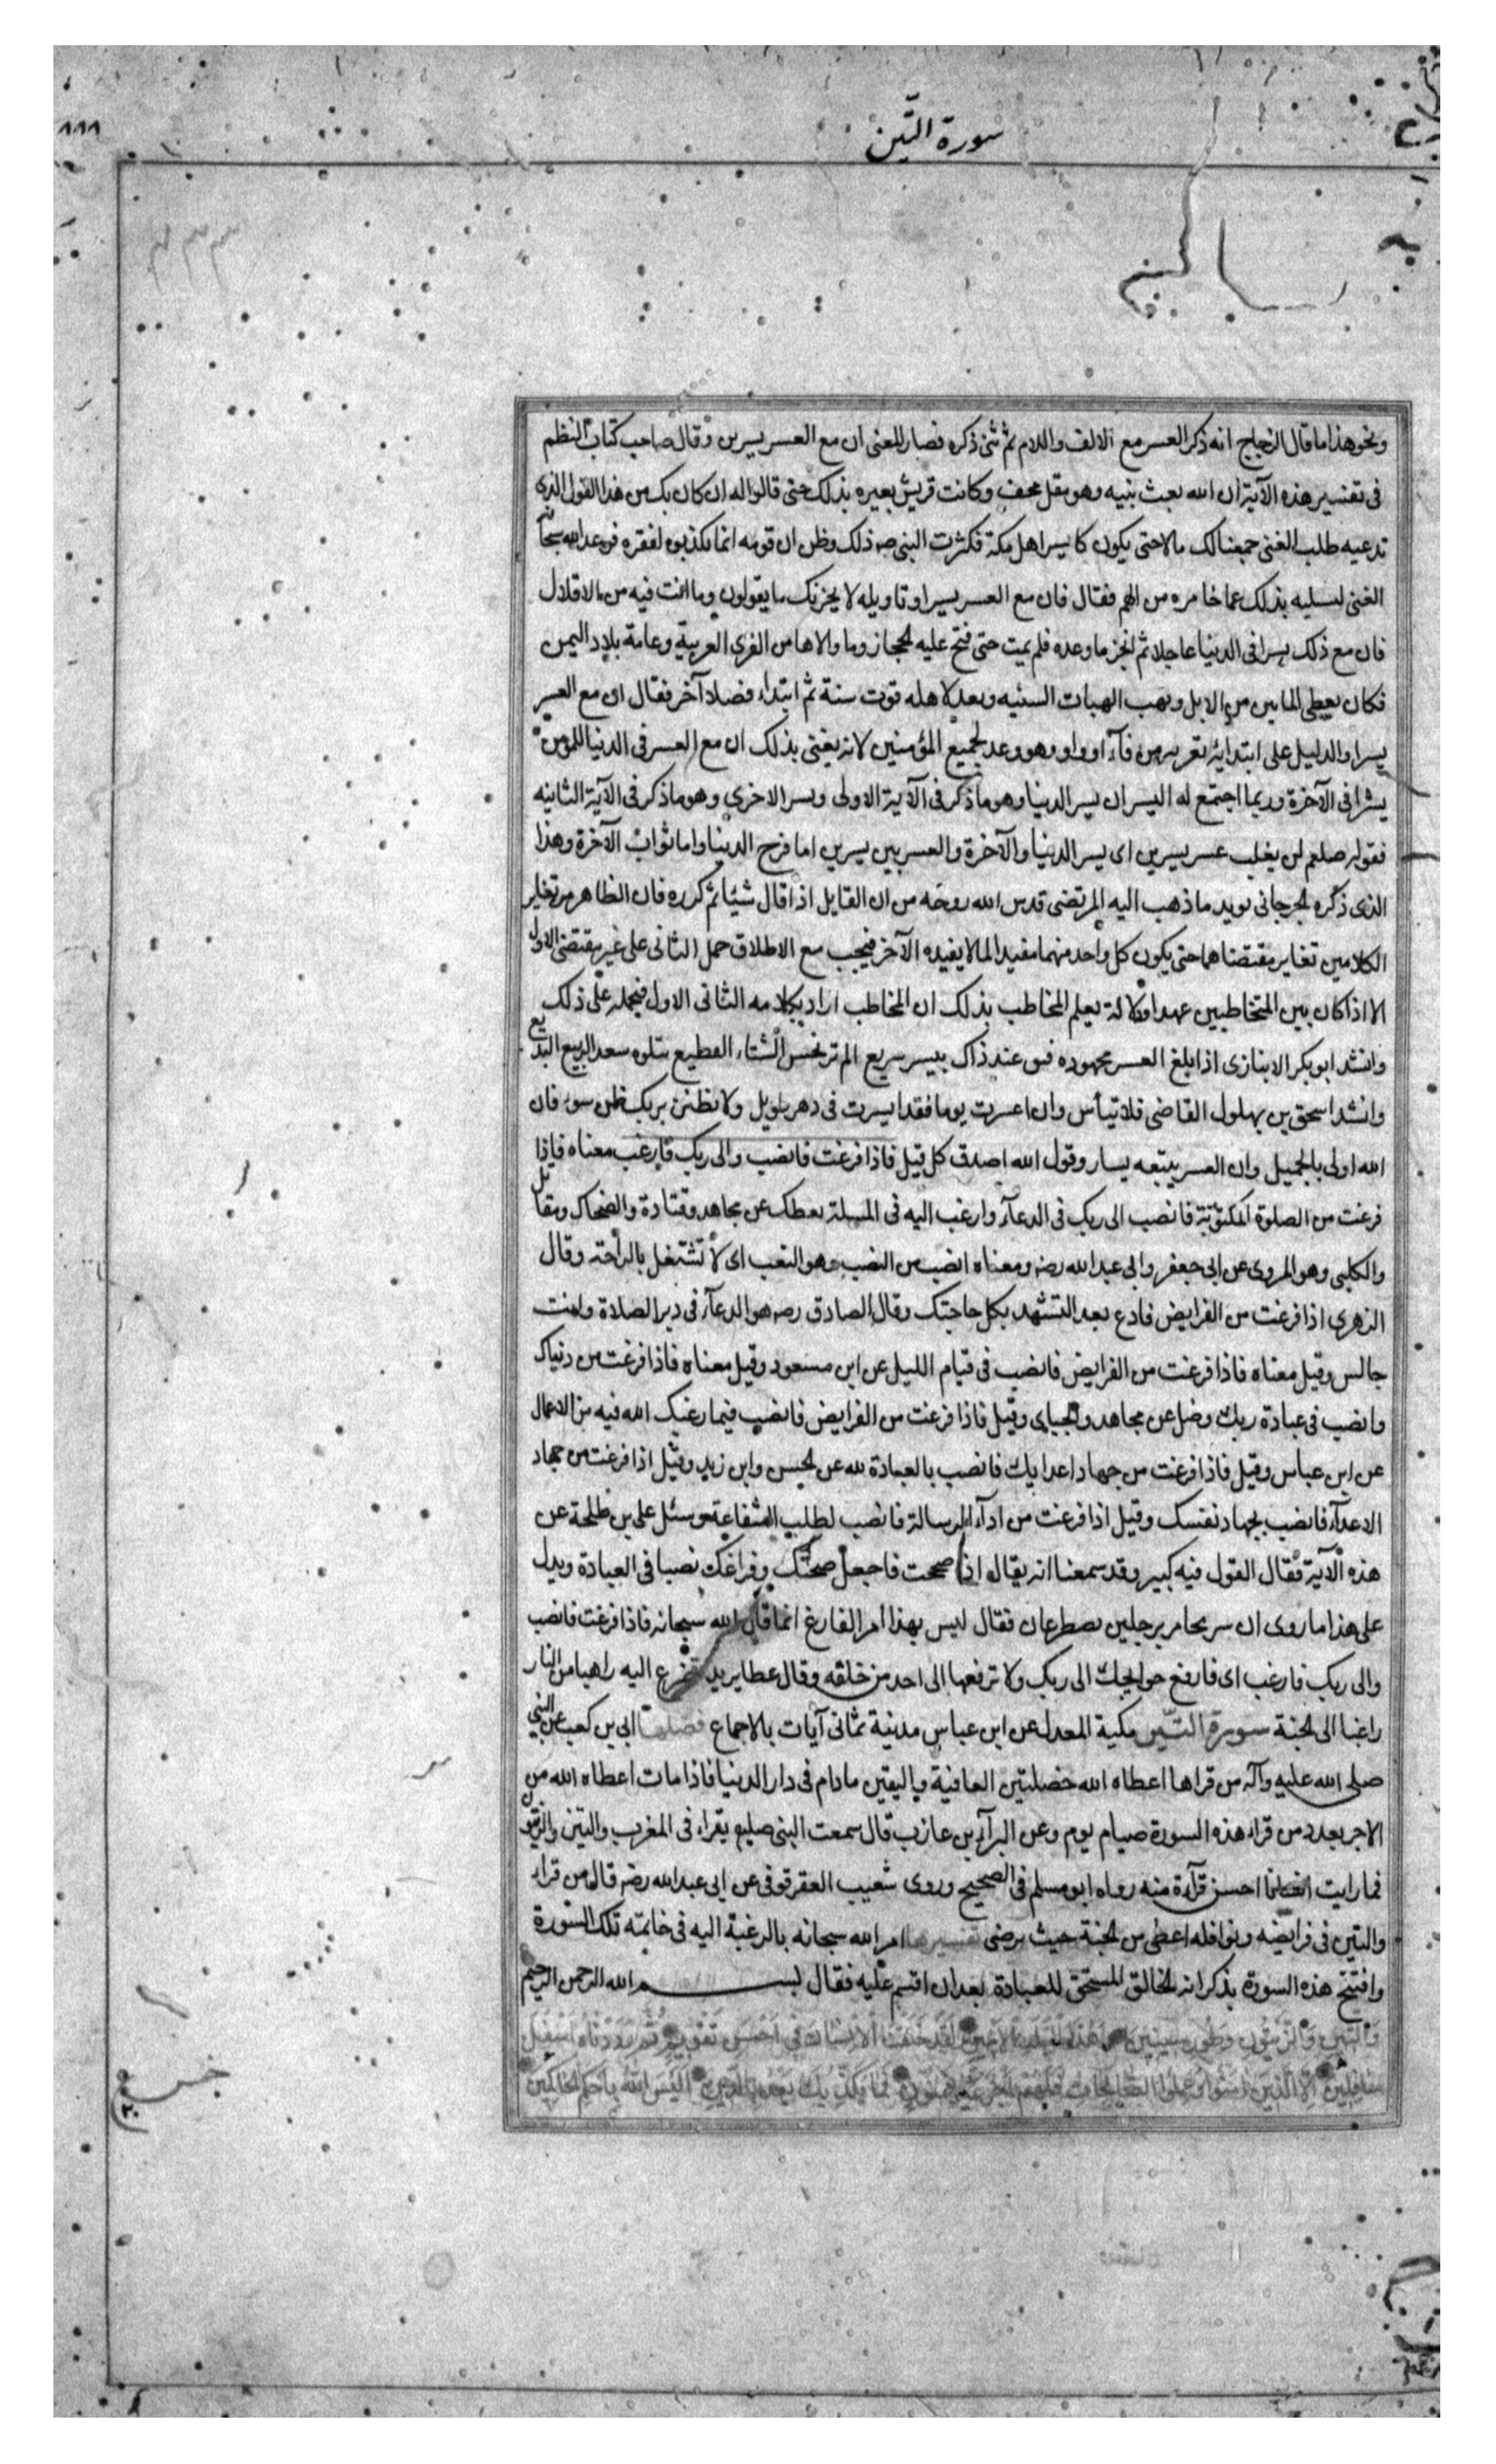 سورة التّين
ونحو هذا ما قال الزجاج انه ذكر العسر مع الالف واللام ثم ثنى ذكره فصار المعنى ان مع العسر يسرين وقال صاحب كتاب النظم
فى تفسير هذه الآية ان الله بعث نبيه وهو مقل مخف وكانت قريش بعيره بذلك حتى قالوا له ان كان بك من هذا القول الذى
تدعيه طلب الغنى جمعنا لك مالا حتى يكون كايسر اهل مكة فكثرت النبى صه ذلك وظن ان قومه انما يكذبوه لفقره فوعد الله سبحانه
الغنى ليسليه بذلك عما خامره من الهم فقال فان مع العسر يسرا وتاويله لا يحزنك ما يقولون وما انت فيه من الاقلال
فان مع ذلك يسرا فى الدنيا عاجلا ثم انجز ما وعده فلم يمت حتى فتح عليه الحجاز وما والاها من القرى العربية وعامة بلاد اليمن
فكان يعطى المايين من الابل ويهب الهبات السنيه ويعد لاهله قوت سنة ثم ابتداء فصلا آخر فقال ان مع العسر
يسرا والدليل على ابتدايه تعريه من فآء او واو وهو وعد لجميع المؤمنين لانه يعنى بذلك ان مع العسر فى الدنيا للمؤمن
يسرا فى الآخرة وربما اجتمع له اليسران يسر الدنيا وهو ما ذكر فى الآية الاولى ويسر الاخرى وهو ما ذكر فى الآية الثانيه
فقوله صلعم لن يغلب عسر يسرين اى يسر الدنيا والآخرة والعسر بين يسرين اما فرج الدنيا واما ثواب الآخرة وهذا
الذى ذكره الجرجانى يويد ما ذهب اليه المرتضى قدس الله روحه من ان القايل اذا قال شيئا ثم كرره فان الظاهر من تغاير
الكلامين تغاير مقتضاهما حتى يكون كل واحد منهما مفيدا لما لا يفيده الآخر فيجب مع الاطلاق حمل الثانى على غير مقتضى الاول
الا اذا كان بين المتخاطبين عهد او دلالة يعلم المخاطب بذلك ان المخاطب اراد بكلامه الثانى الاول فيحمله على ذلك
وانشد ابو بكر الانبازى اذا بلغ العسر مجهوده فثق عند ذاك بيسر سريع الم تر نحس الشتاء الفظيع يتلوه سعد الربيع البديع
وانشد اسحق بن بهلول القاضى فلا تيأس وان اعسرت يوما فقد ايسرت فى دهر طويل ولا تظنن بربك ظن سوء فان
الله اولى بالجميل وان العسر يتبعه يسار وقول الله اصدق كل قيل فاذا فرغت فانصب والى ربك فارغب معناه فاذا
فرغت من الصلوة المكتوبة فانصب الى ربك فى الدعآء وارغب اليه فى المسلة يعطك عن مجاهد وقتادة والضحاك ومقاتل
والكلبى وهو المروى عن ابى جعفر وابى عبد الله رضه ومعناه انصب من النصب وهو التعب اى لا تشتغل بالراحة وقال
الزهرى اذا فرغت من الفرايض فادع بعد التشهد بكل حاجتك وقال الصادق رضه هو الدعآء فى دبر الصلاة وانت
جالس وقيل معناه فاذا فرغت من الفرايض فانصب فى قيام الليل عن ابن مسعود وقيل معناه فاذا فرغت من دنياك
وانصب فى عبادة ربك وصل عن مجاهد والجبايى وقيل فاذا فرغت من الفرايض فانصب فيما رغبك الله فيه من الاعمال
عن ابن عباس وقيل فاذا فرغت من جهاد اعدايك فانصب بالعبادة لله عن الحسن وابن زيد وقيل اذا فرغت من جهاد
الاعدآء فانصب بجهاد نفسك وقيل اذا فرغت من ادآء الرسالة فانصب لطلب الشفاعة وسئل على بن طلحة عن
هذه الآية فقال القول فيه كبير وقد سمعنا انه يقال اذا صححت فاجعل صحتك وفراغك نصبا فى العبادة ويدل
على هذا ما روى ان سريحا مر برجلين يصطرعان فقال ليس بهذا امر الفارغ انما قال الله سبحانه فاذا فرغت فانصب
والى ربك فارغب اى فارفع حوايجك الى ربك ولا ترفعها الى احد من خلقه وقال عطا يريد تضرع اليه راهبا من النار
راغبا الى الجنة سورة التّين مكية المعدل عن ابن عباس مدنية ثمانى آيات بالاجماع فضلها ابى بن كعب عن النبى
صلى الله عليه وآله من قراها اعطاه الله خصلتين العافية واليقين مادام فى دار الدنيا فاذا مات اعطاه الله من
الاجر بعدد من قراء هذه السورة صيام يوم وعن البرآء بن عازب قال سمعت النبى صلعم يقراء فى المغرب والتين والزيتون
فما رايت انسانا احسن قرآءة منه رواه ابو مسلم فى الصحيح وروى شعيب العقرقوفى عن ابى عبد الله رضه قال من قراء
والتين فى فرايضه ونوافله اعطى من الجنة حيث يرضى تفسيرها امر الله سبحانه بالرغبة اليه فى خاتمة تلك السورة
وافتتح هذه السورة بذكر انه الخالق المستحق للعبادة بعد ان اقسم عليه فقال بسم الله الرحمن الرحيم
وَالتّينِ وَالزَّيْتُونِ وَطُورِ سِينِينَ وَهَذَا الْبَلَدِ الْأَمِينِ لَقَدْ خَلَقْنَا الْإِنْسَانَ فِي أَحْسَنِ تَقْوِيمٍ ثُمَّ رَدَدْنَاهُ أَسْفَلَ
سَافِلِينَ إِلَّا الَّذِينَ آمَنُوا وَعَمِلُوا الصَّالِحَاتِ فَلَهُمْ أَجْرٌ غَيْرُ مَمْنُونٍ فَمَا يُكَذِّبُكَ بَعْدُ بِالدِّينِ أَلَيْسَ اللَّهُ بِأَحْكَمِ الْحَاكِمِينَ